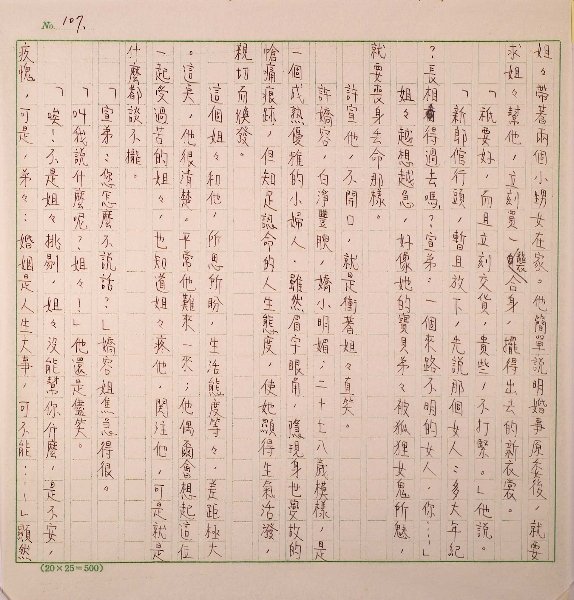 No. 107.
姐々帶著兩個小甥女在家。他簡單說明婚事原委後，就要
求姐々幫他，立刻買一套合身、擺得出去的新衣裳。
「祇要好，而且立刻交貨，貴些，不打緊。」他說。
「新郎倌行頭，暫且放下，先說那個女人：多大年紀
？長相看得過去嗎？宣弟：一個來路不明的女人，你⋯」
姐々越想越急，好像她的寶貝弟々被狐狸女鬼所魅，
就要喪身去命那樣。
許宣他，不開口，就是衝著姐々直笑。
許嬌容，白淨豐腴，嬌小明媚：二十七八歲模樣，是
一個成熟優雅的小婦人。雖然眉宇眼角，隱現身世變故的
愴痛痕跡，但知足認命的人生態度，使她顯得生氣活潑，
親切而煥發。
這個姐々和他，所思所盼，生活態度等々，差距極大
。這矣，他很清楚，平常他難來一來；他偶爾會想起這位
一起受過苦的姐々，也知道姐々疼他，関注他，可是就是
什麼都談不攏。
「宣弟：您怎麼不說話？」嬌容姐焦急得很。
「叫我說什麼呢？姐々！」他還是儘笑。
「唉！不是姐々挑剔，姐々沒能幫你什麼，是不安，
疚愧，可是，弟々：婚姻是人生大事，可不能⋯⋯」顯然
(20×25=500)